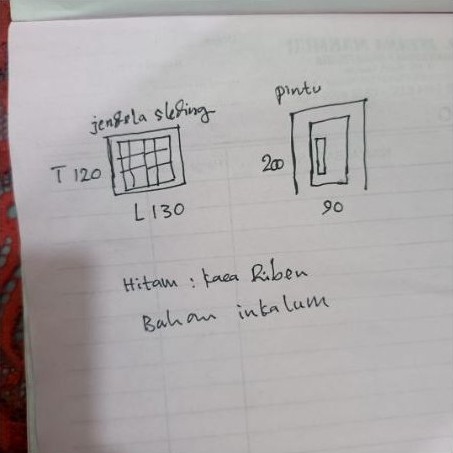 jendela sleding
T 120
L 130
pintu
200
90
Hitam : kaca Riben
Bahan inkalum